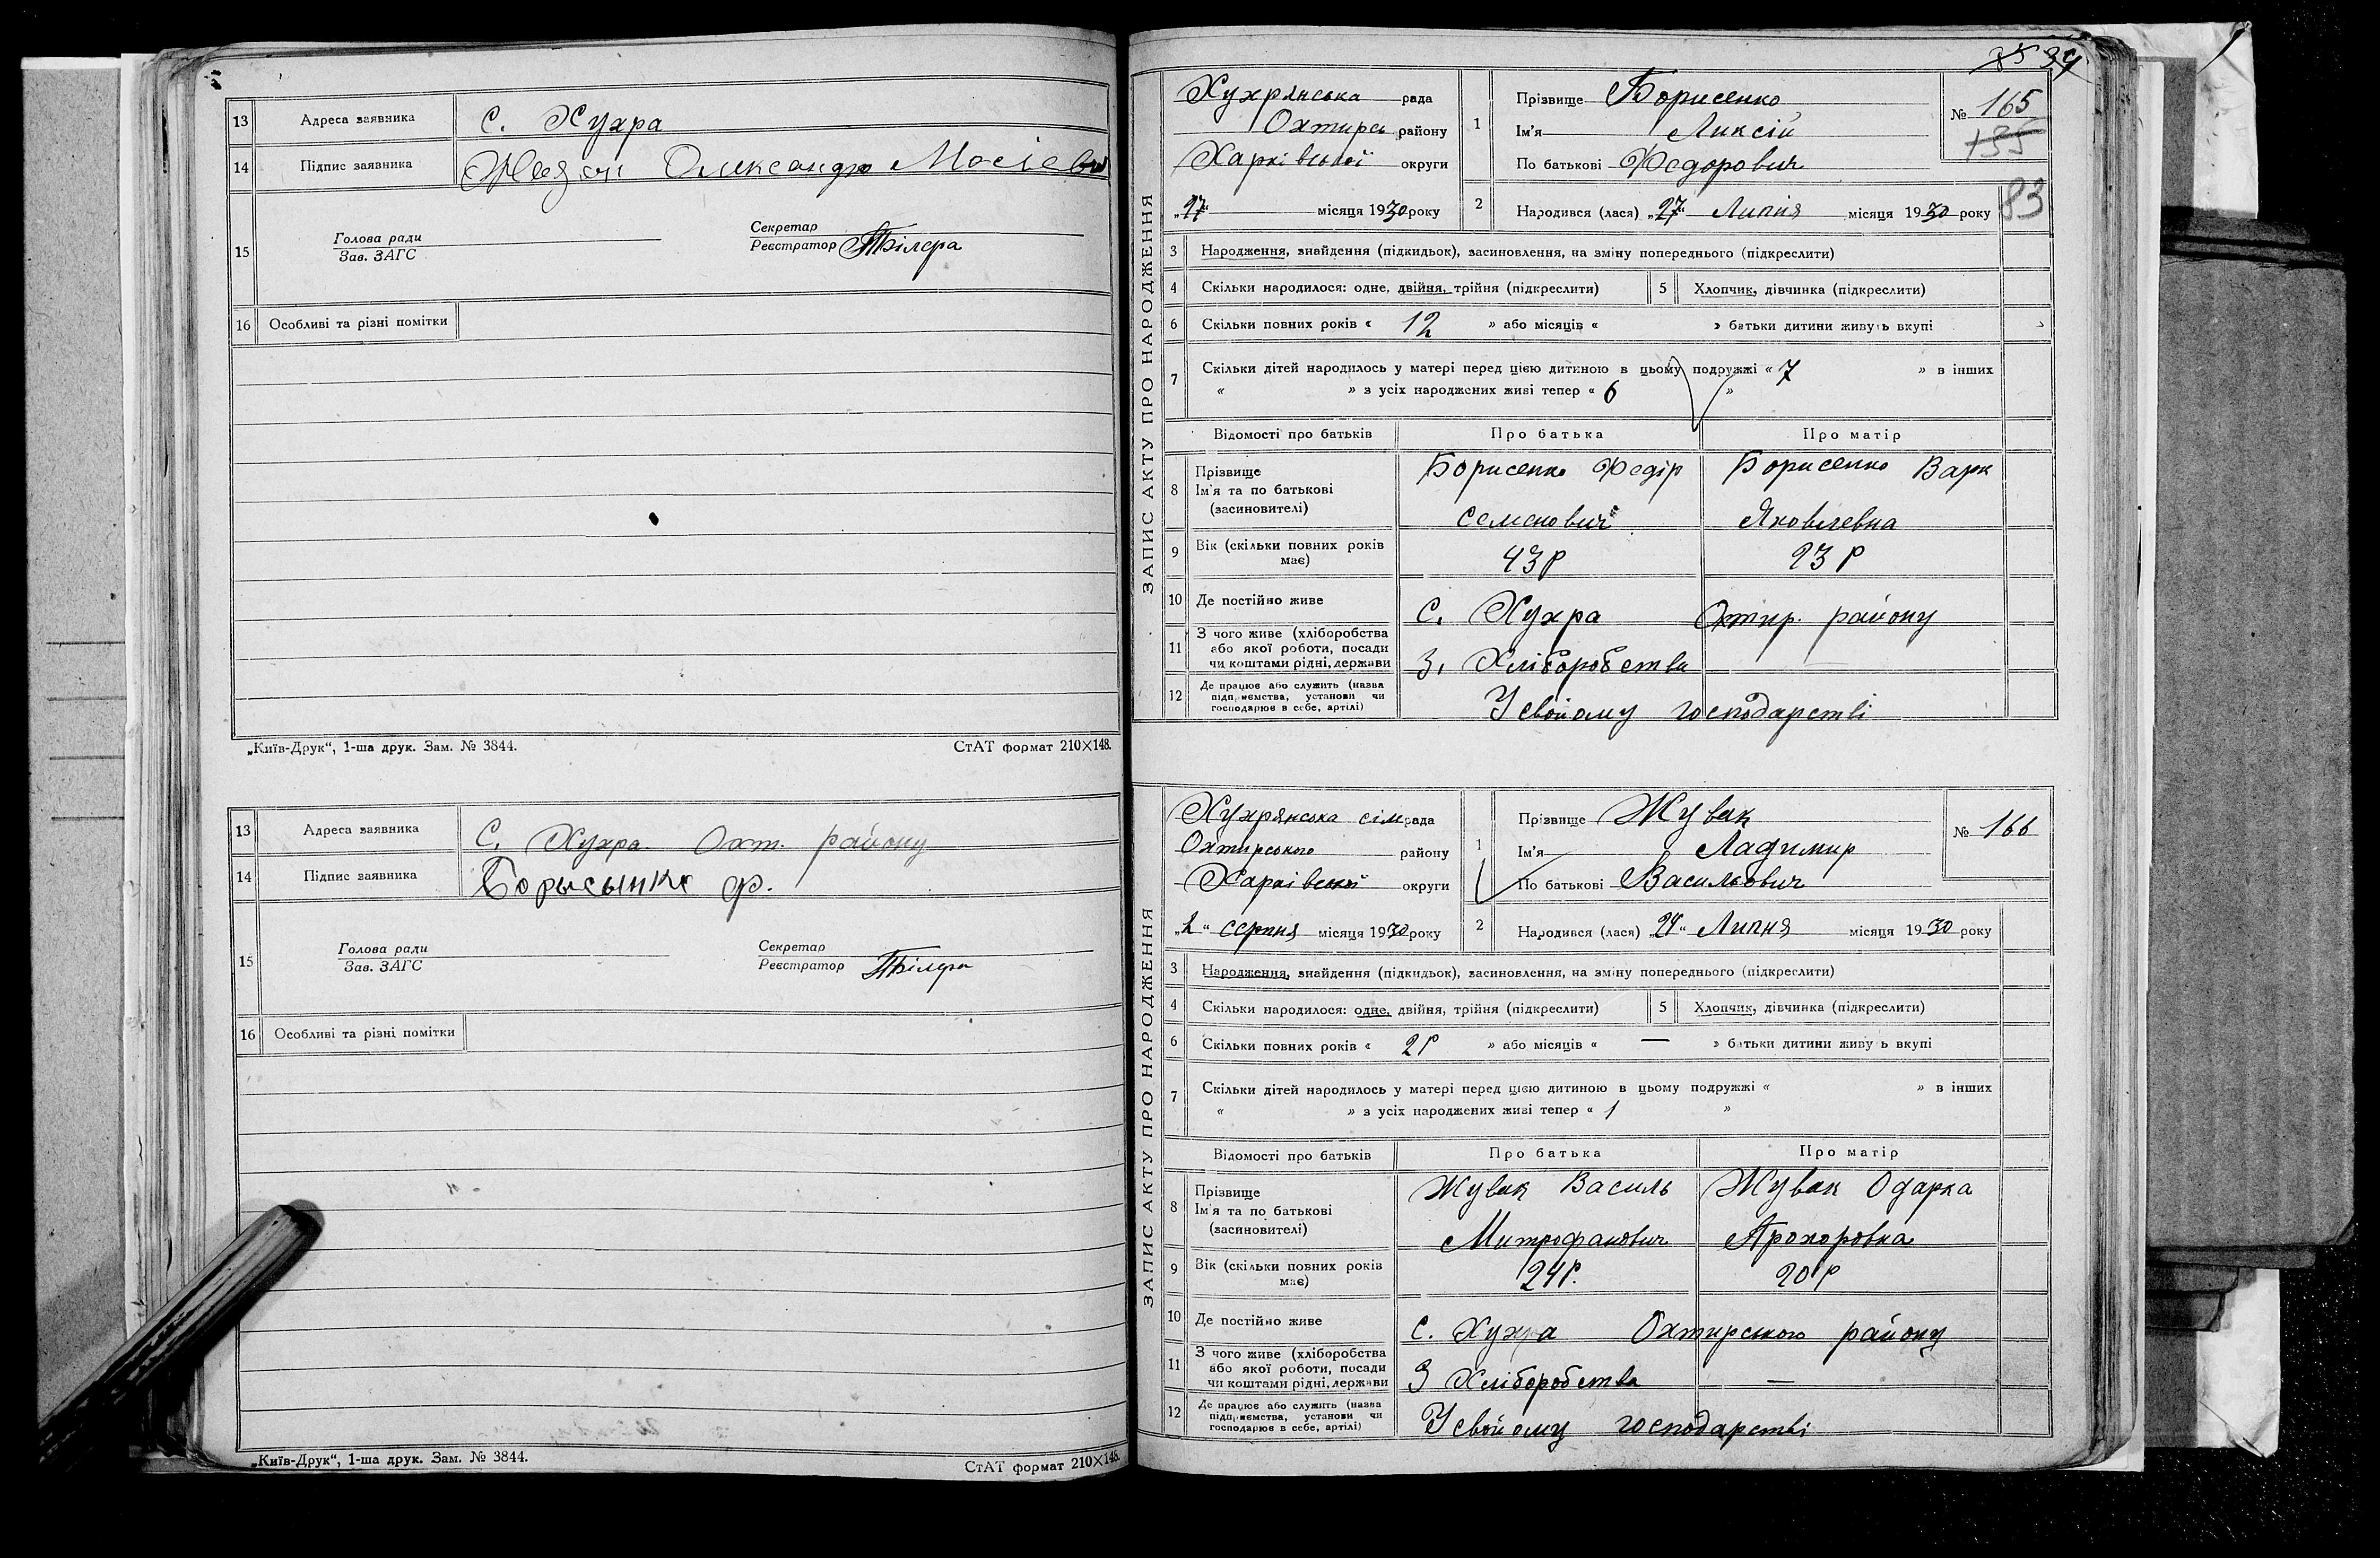 13 Адреса заявника С. Хухра
14 Підпис заявника Олександр Мосіев
15 Голова ради
Зав. ЗАГС
Секретар
Реєстратор Білера
16 Особливі та різні помітки
„Київ-Друк“, 1-ша друк. Зам. № 3844. СтАТ формат 210×148.
13 Адреса заявника С. Хухра Охт. району
14 Підпис заявника Борысынко ф.
15 Голова ради
Зав. ЗАГС
Секретар
Реєстратор Білера
16 Особливі та різні помітки
„Київ-Друк“, 1-ша друк. Зам. № 3844. СтАТ формат 210×148.
ЗАПИС АКТУ ПРО НАРОДЖЕННЯ
Хухрянська рада
Охтирсь району
Харківської округи
„27“ місяця 1930 року
1 Прізвище Борисенко
Ім'я Ликсій
По батькові Федорович
№ 165
135
83
2 Народився (лася) „27“ Липня місяця 1930 року
3 Народження, знайдення (підкидьок), засиновлення, на зміну попереднього (підкреслити)
4 Скільки народилося: одне, двійня, трійня (підкреслити) 5 Хлопчик, дівчинка (підкреслити)
6 Скільки повних років « 12 » або місяців « » батьки дитини живуть вкупі
7 Скільки дітей народилось у матері перед цією дитиною в цьому подружжі « 7 » в інших
« » з усіх народжених живі тепер « 6 »
Відомості про батьків Про батька Про матір
8 Прізвище
Ім'я та по батькові
(засиновителі)
Борисенко Федір
Семенович
Борисенко Варк
Яковлевна
9 Вік (скільки повних років
має) 43 р 23 р
10 Де постійно живе С. Хухра Охтир. району
11 З чого живе (хліборобства
або якої роботи, посади
чи коштами рідні, держави З. Хліборобства
12 Де працює або служить (назва
підприємства, установи чи
господарює в себе, артілі) У свойому господарстві
ЗАПИС АКТУ ПРО НАРОДЖЕННЯ
Хухрянська сілрада
Охтирського району
Харківської округи
„2“ серпня місяця 1930 року
1 Прізвище Жувак
Ім'я Ладимир
По батькові Васильович
№ 166
2 Народився (лася) „24“ Липня місяця 1930 року
3 Народження, знайдення (підкидьок), засиновлення, на зміну попереднього (підкреслити)
4 Скільки народилося: одне, двійня, трійня (підкреслити) 5 Хлопчик, дівчинка (підкреслити)
6 Скільки повних років « 2 р » або місяців « — » батьки дитини живуть вкупі
7 Скільки дітей народилось у матері перед цією дитиною в цьому подружжі « » в інших
« » з усіх народжених живі тепер « 1 »
Відомості про батьків Про батька Про матір
8 Прізвище
Ім'я та по батькові
(засиновителі)
Жувак Василь
Митрофанович
Жувак Одарка
Прохоровна
9 Вік (скільки повних років
має) 24 р. 20 р
10 Де постійно живе С. Хухра Охтирського району
11 З чого живе (хліборобства
або якої роботи, посади
чи коштами рідні, держави З Хліборобства —
12 Де працює або служить (назва
підприємства, установи чи
господарює в себе, артілі) У свойому господарстві